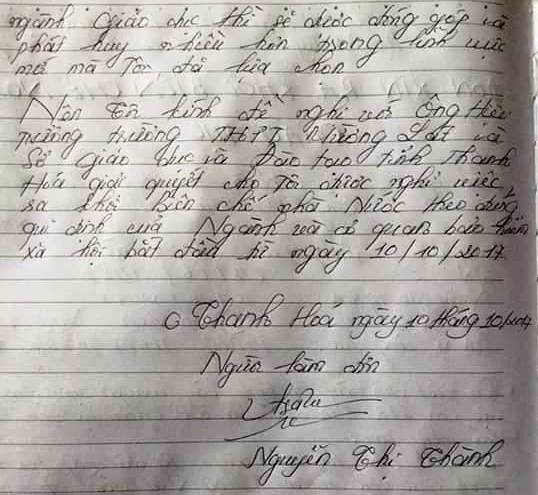 ngành Giáo dục thì sẽ được đóng góp và
phát huy nhiều hơn trong lĩnh vực
mới mà Tôi đã lựa chọn
Nên Em kính đề nghị với Ông Hiệu
trưởng trường THPT Mường Lát và
Sở giáo dục và Đào tạo tỉnh Thanh
Hoá giải quyết cho Tôi được nghỉ việc,
ra khỏi Biên chế nhà Nước theo đúng
qui định của Ngành và cơ quan bảo hiểm
xã hội bắt đầu từ ngày 10/10/2017
Thanh Hoá ngày 10 tháng 10/2017
Người làm đơn
Nguyễn Thị Thành